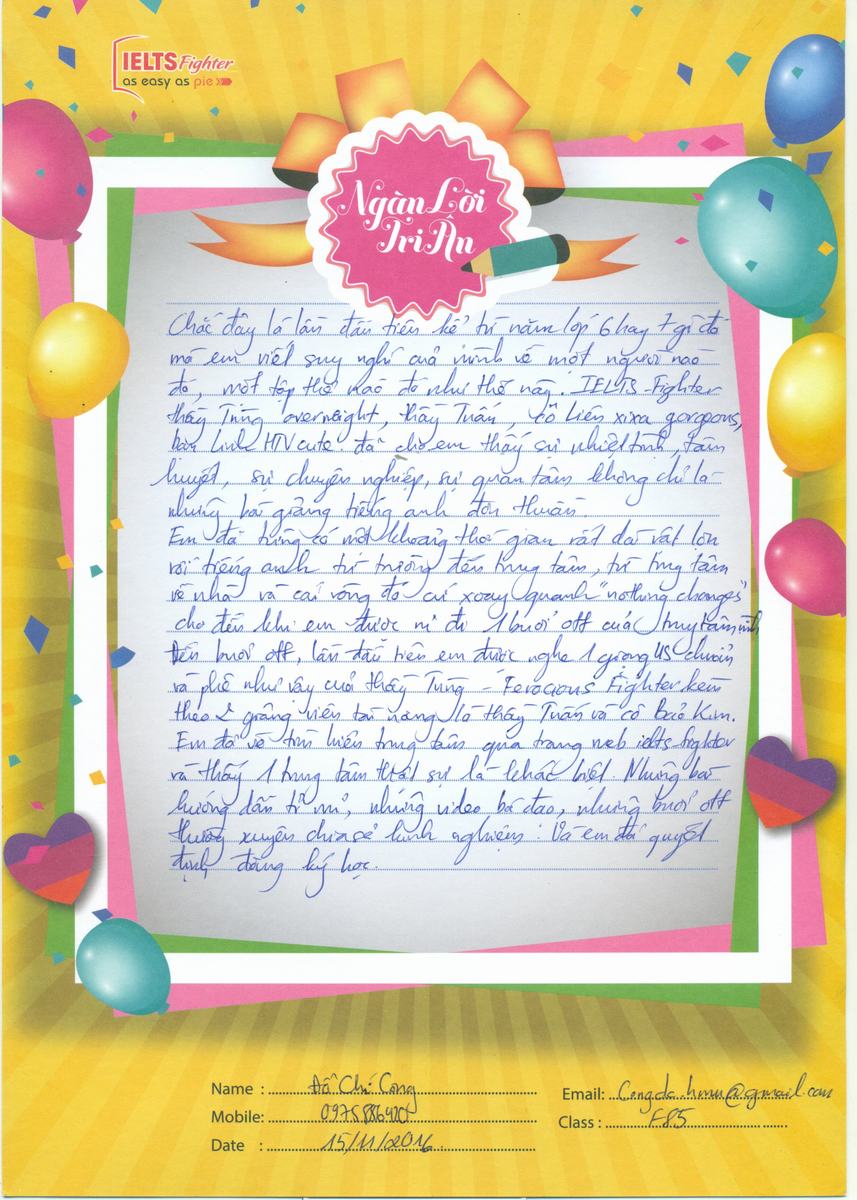 IELTS Fighter
as easy as pie
Ngàn Lời
Tri Ân
Chắc đây là lần đầu tiên kể từ năm lớp 6 hay 7 gì đó
mà em viết suy nghĩ của mình về một người nào
đó, một tập thể nào đó như thế này. IELTS Fighter
thầy Tùng overweight, thầy Tuấn, cô Liên xixa gorgeous,
bạn Linh HTV cute. đã cho em thấy sự nhiệt tình, tâm
huyết, sự chuyên nghiệp, sự quan tâm không chỉ là
những bài giảng tiếng anh đơn thuần
Em đã từng có một khoảng thời gian rất dài vật lộn
với tiếng anh từ trường đến trung tâm, từ trung tâm
về nhà và cái vòng đó cứ xoay quanh "nothing changes"
cho đến khi em được đi 1 buổi off của trung tâm mình
Đến buổi off, lần đầu tiên em được nghe 1 giọng US chuẩn
và phê như vậy của thầy Tùng - Ferocious Fighter kèm
theo 2 giảng viên tài năng là thầy Tuấn và cô Bảo Kim.
Em đã về tìm hiểu trung tâm qua trang web ielts fighter
và thấy 1 trung tâm thật sự là khác biệt. Những bài
hướng dẫn tỉ mỉ, những video bá đạo, những buổi off
thường xuyên chia sẻ kinh nghiệm. Và em đã quyết
định đăng ký học.
Name : Đỗ Chí Công
Email: Congdc.hmu@gmail.com
Mobile:
Class : F85
Date : 15/11/2016